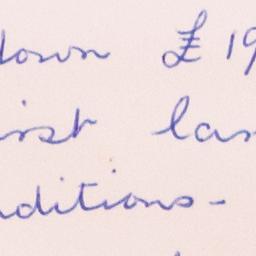 down £19
irst lan
ditions -